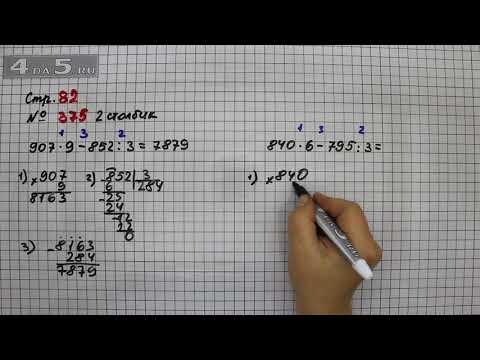 4DA5.RU
Стр. 82
№ 375 2 столбик
1 3 2
907 · 9 − 852 : 3 = 7879
1) × 907
9
8163
2) − 852 | 3
6 | 284
− 25
24
− 12
12
0
3) − 8163
284
7879
1 3 2
840 · 6 − 795 : 3 =
1) × 840